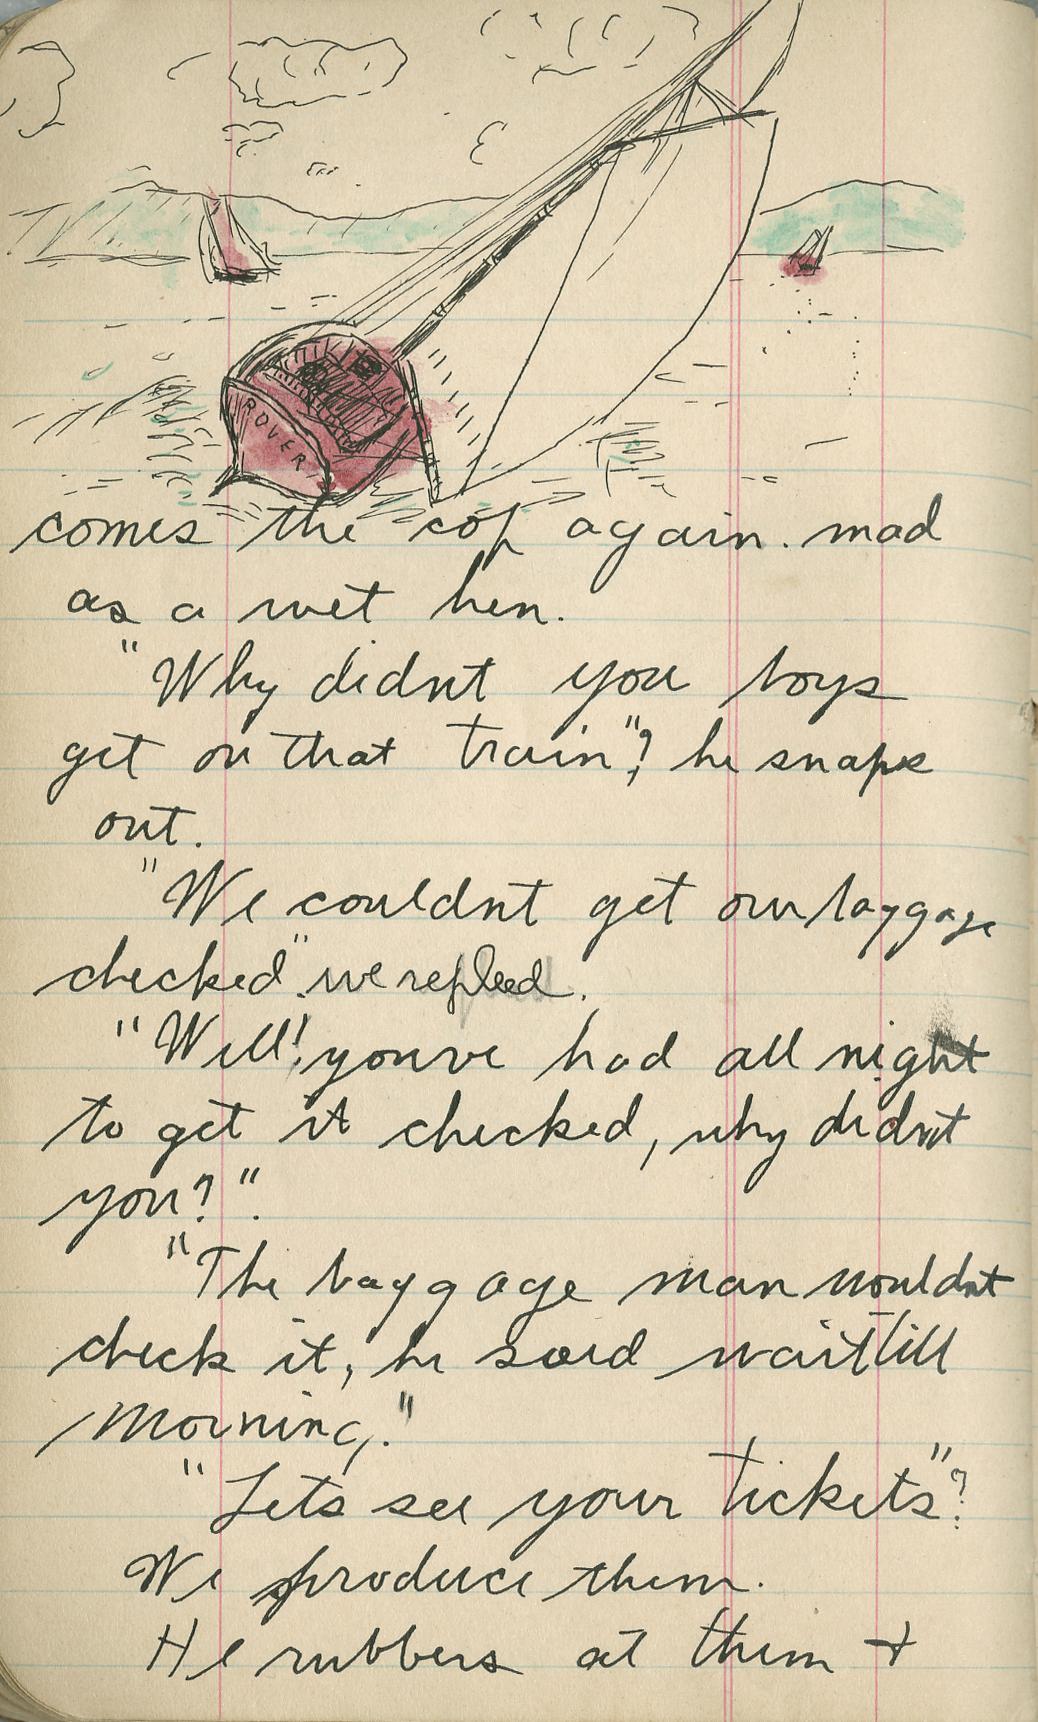 ROVER
comes the cop again. mad
as a wet hen.
"Why didnt you boys
get on that train"? he snaps
out.
"We couldnt get our baggage
checked". we replied.
"Well! youve had all night
to get it checked, why didnt
you?".
"The baggage man wouldnt
check it, he said wait till
morning."
"Lets see your tickets"?
We produce them.
He rubbers at them +